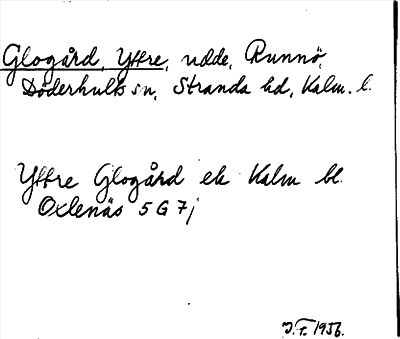 Glogård, Yttre, udde, Runnö,
Döderhults sn, Stranda hd, Kalm. l.
Yttre Glogård ek Kalm bl.
Oxlenäs 5 G 7j
J.F. 1956.